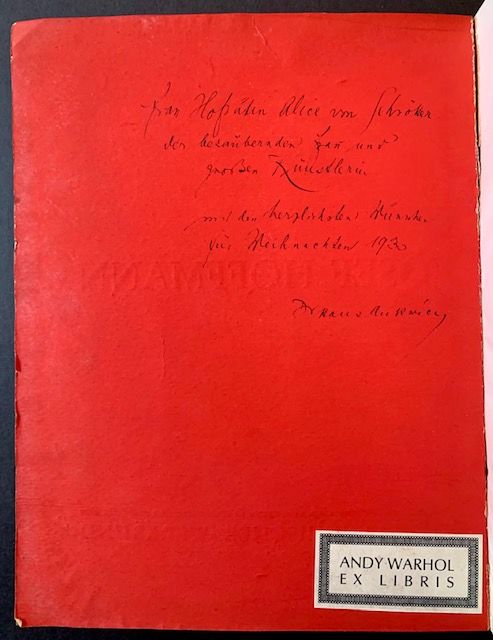 Frau Hofrätin Alice von Schröker
der bezaubernden Frau und
großen Künstlerin
mit den herzlichsten Wünschen
für Weihnachten 1930
HOFFMANN
ANDY WARHOL
EX LIBRIS